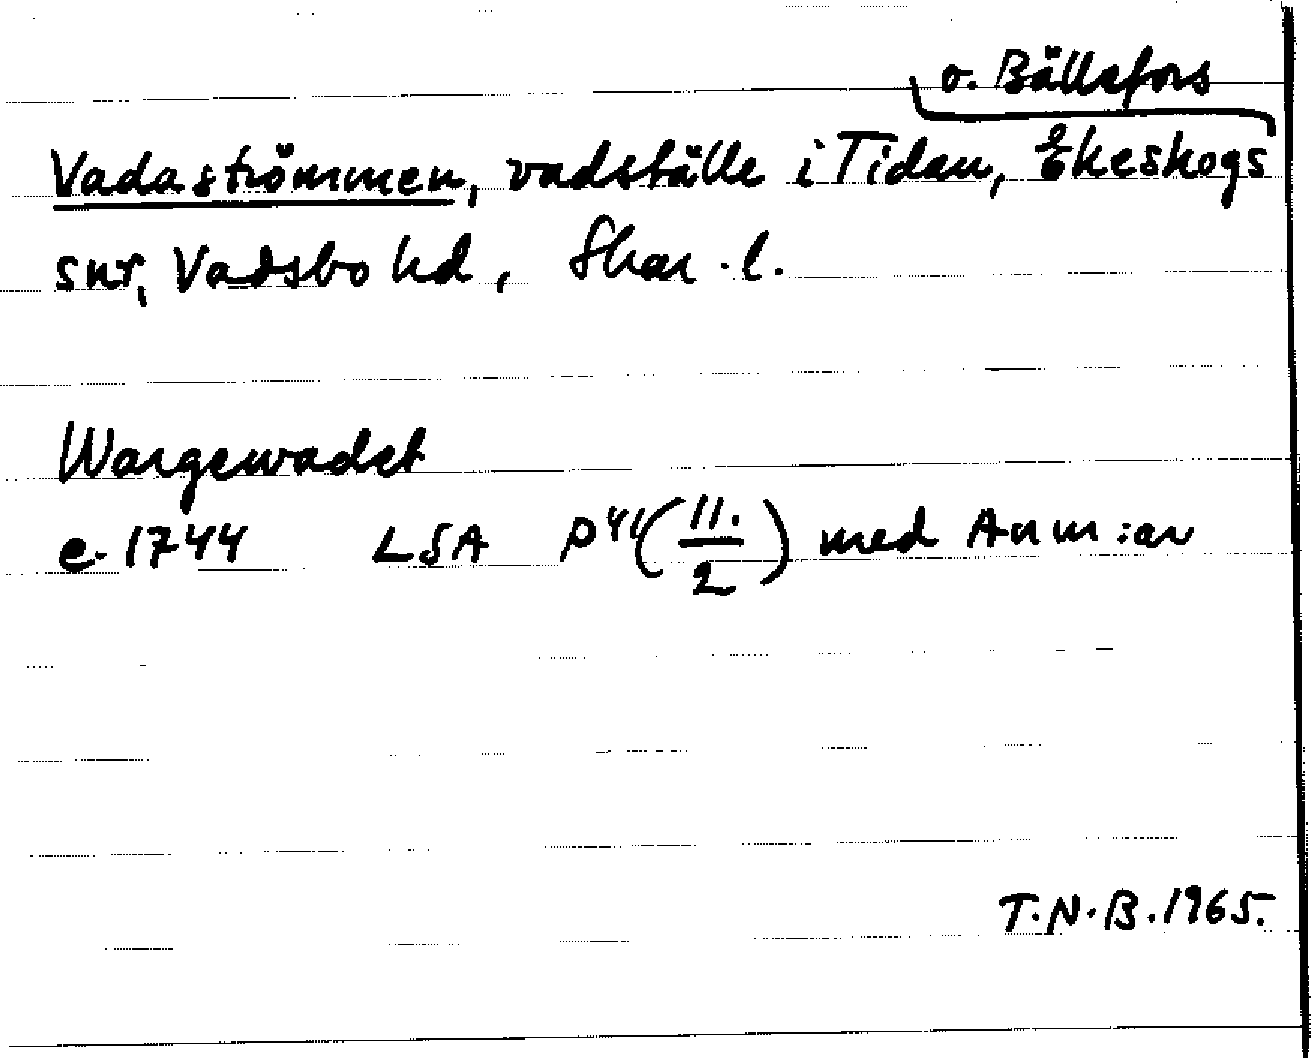 o. Bällefors
Vadaströmmen, vadställe i Tidan, Ekeskogs
snr, Vadsbo hd, Skar. l.
Wargewadet
e. 1744 LSA P41 (11./2) med Anm:ar
T.N.B. 1965.